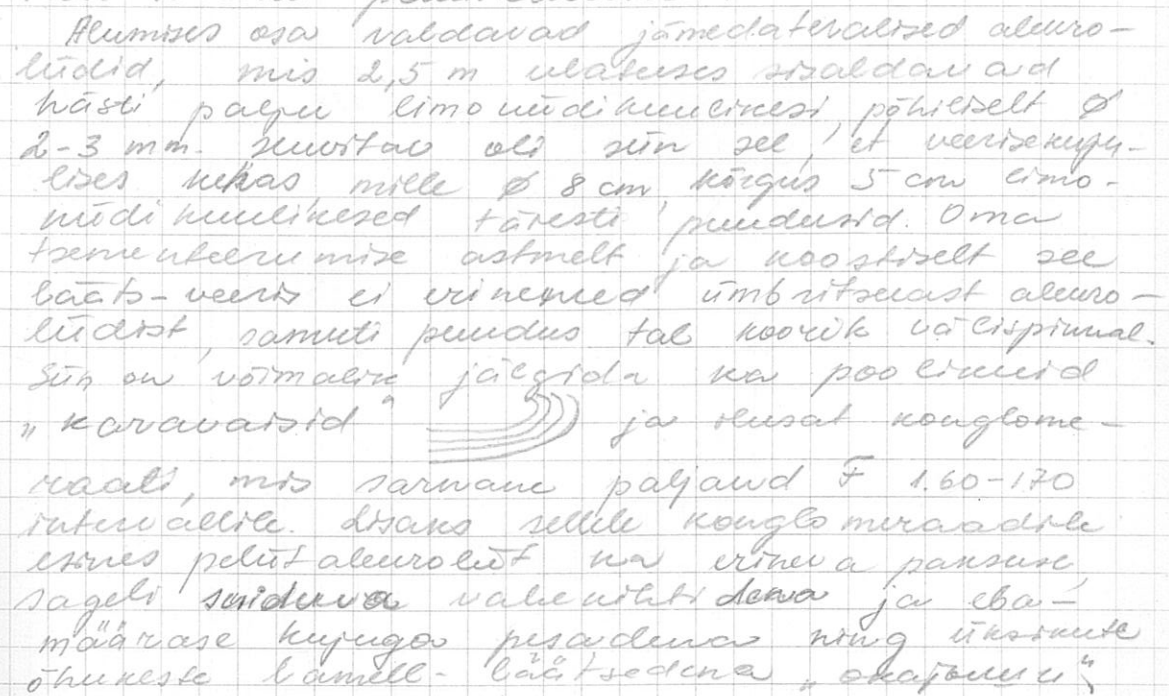 Alumises osa valdavad jämedateralised aleuro-
liidid, mis 2,5 m ulatuses sisaldavad
hästi palju limoniidikuulikesi, põhiliselt ø
2-3 mm. Huvitav oli siin see, et veerisekuju-
lises kehas, mille ø 8 cm, kõrgus 5 cm limo-
niidi kuulikesed täiesti puudusid. Oma
tsementeerumise astmelt ja koostiselt see
lääts-veeris ei erinenud ümbritsevast aleuro-
liidist, samuti puudus tal koorik välispinnal.
Siin on võimalik jälgida ka poolikuid
„karavaisid“ ja ilusat konglome-
raati, mis sarnane paljand F 1.60-1.70
intervallile. Lisaks sellele konglomeraadile
esines peliitaleuroliit ka erineva paksuse,
sageli suiduva vahekihtidena ja eba-
määrase kujuga pesadena ning üksikute
õhukeste lamell-läätsedena